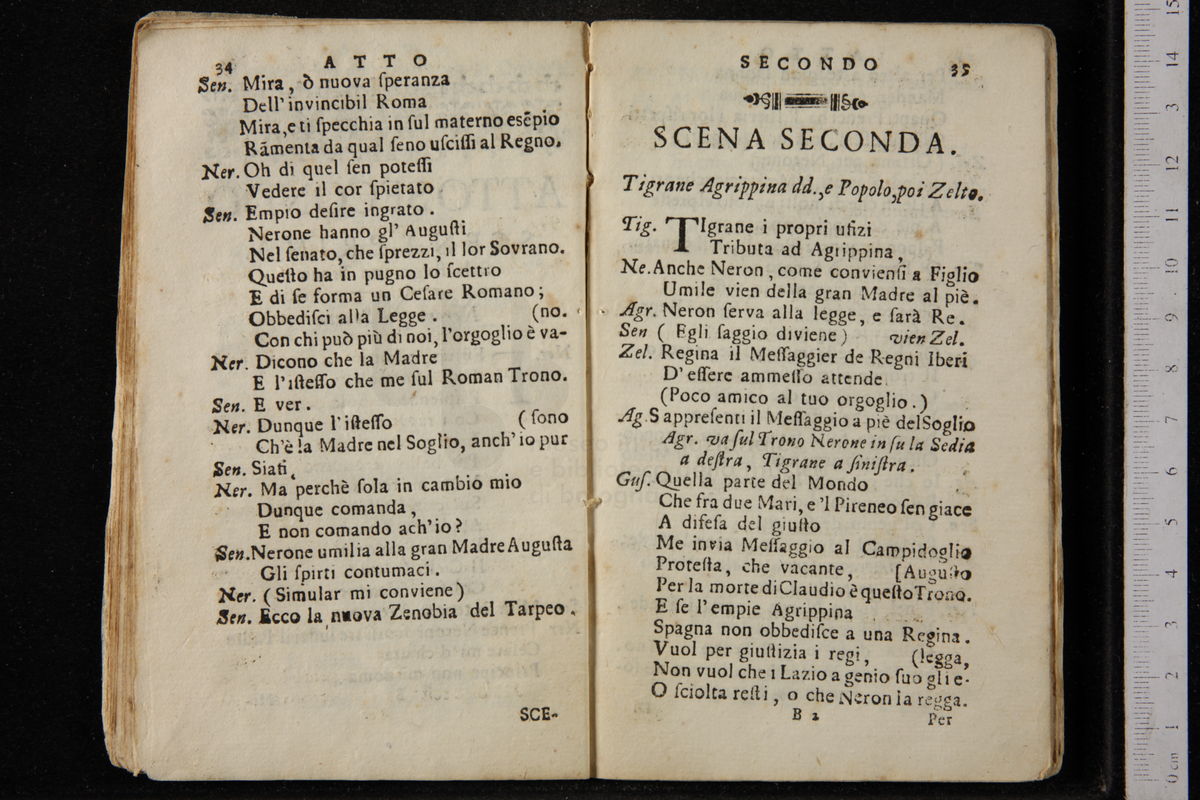 34 ATTO
Sen. Mira, ò nuova ſperanza
Dell' invincibil Roma
Mira, e ti ſpecchia in ſul materno esẽpio
Rãmenta da qual ſeno uſciſſi al Regno.
Ner. Oh di quel ſen poteſſi
Vedere il cor ſpietato
Sen. Empio deſire ingrato.
Nerone hanno gl' Auguſti
Nel ſenato, che ſprezzi, il lor Sovrano.
Queſto ha in pugno lo ſcettro
E di ſe forma un Ceſare Romano;
Obbediſci alla Legge. (no.
Con chi può più di noi, l'orgoglio è va-
Ner. Dicono che la Madre
E l'iſteſſo che me ſul Roman Trono.
Sen. E ver.
Ner. Dunque l'iſteſſo (ſono
Ch'è la Madre nel Soglio, anch' io pur
Sen. Siati
Ner. Ma perchè ſola in cambio mio
Dunque comanda,
E non comando ach'io?
Sen. Nerone umilia alla gran Madre Auguſta
Gli ſpirti contumaci.
Ner. (Simular mi conviene)
Sen. Ecco la nuova Zenobia del Tarpeo.
SCE-
SECONDO 35
SCENA SECONDA.
Tigrane Agrippina dd., e Popolo, poi Zelto.
Tig. TIgrane i propri ufizi
Tributa ad Agrippina,
Ne. Anche Neron, come convienſi a Figlio
Umile vien della gran Madre al piè.
Agr. Neron ſerva alla legge, e ſarà Re.
Sen ( Egli ſaggio diviene) vien Zel.
Zel. Regina il Meſſaggier de Regni Iberi
D' eſſere ammeſſo attende.
(Poco amico al tuo orgoglio.)
Ag. S appreſenti il Meſſaggio a piè del Soglio
Agr. va ſul Trono Nerone in ſu la Sedia
a deſtra, Tigrane a ſiniſtra.
Guſ. Quella parte del Mondo
Che fra due Mari, e 'l Pireneo ſen giace
A difeſa del giuſto
Me invia Meſſaggio al Campidoglio
Proteſta, che vacante, [Auguſto
Per la morte di Claudio è queſto Trono.
E ſe l' empie Agrippina
Spagna non obbediſce a una Regina.
Vuol per giuſtizia i regi, (legga,
Non vuol che i Lazio a genio ſuo gli e-
O ſciolta reſti, o che Neron la regga.
B 2 Per